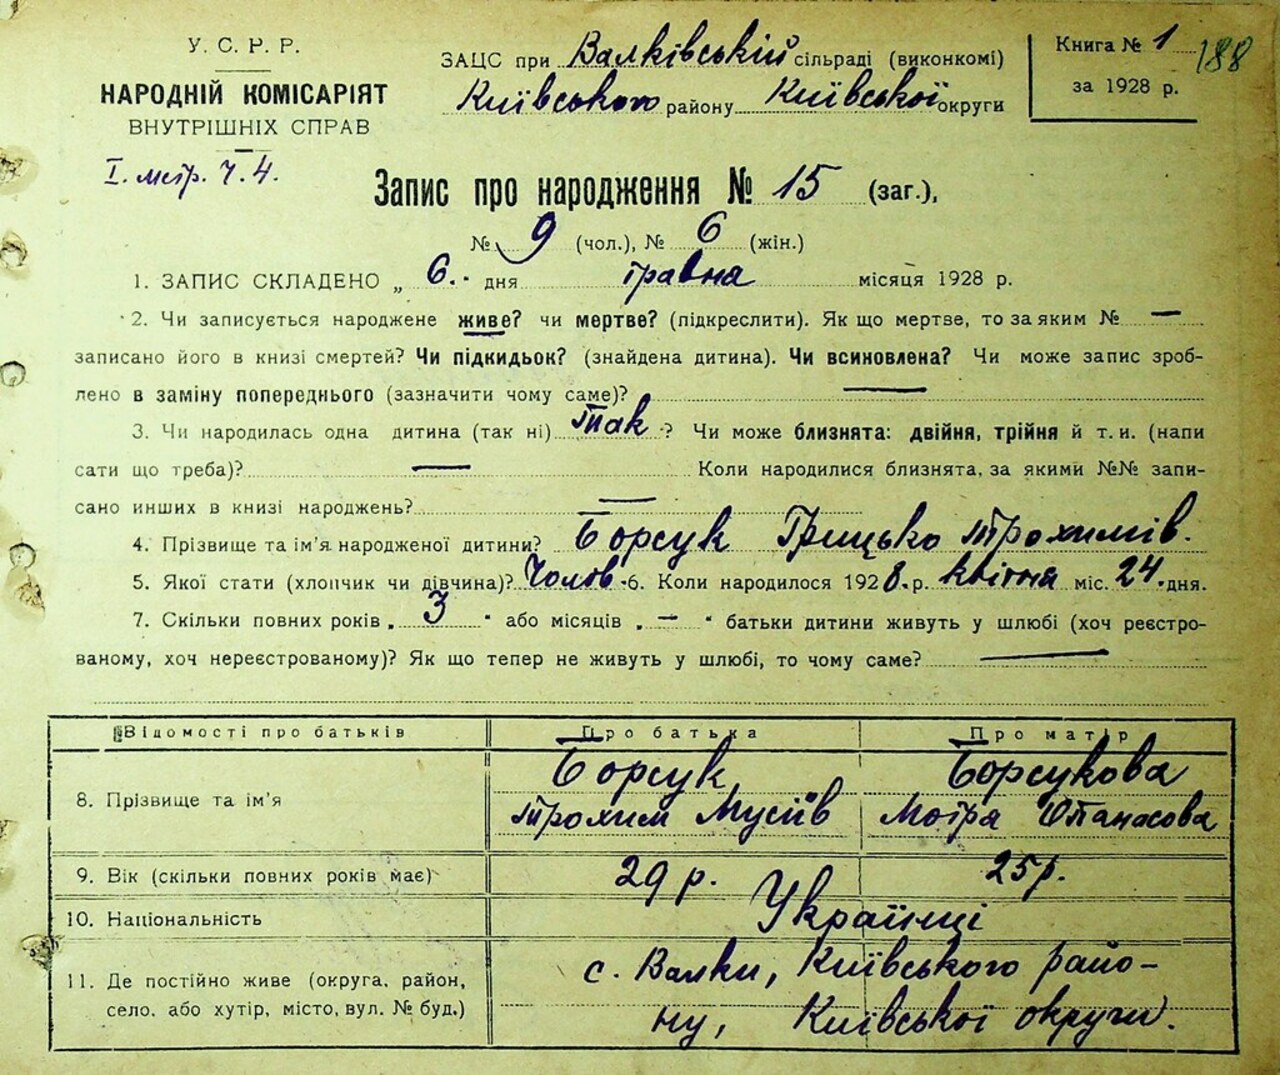 У. С. Р. Р.
НАРОДНІЙ КОМІСАРІЯТ
ВНУТРІШНІХ СПРАВ
І. метр. Ч. 4.
ЗАЦС при Валківській сільраді (виконкомі)
Київського району Київської округи
Книга № 1
за 1928 р.
188
Запис про народження № 15 (заг.),
№ 9 (чол.), № 6 (жін.)
1. ЗАПИС СКЛАДЕНО „ 6. дня травня місяця 1928 р.
2. Чи записується народжене живе? чи мертве? (підкреслити). Як що мертве, то за яким № —
записано його в книзі смертей? Чи підкидьок? (знайдена дитина). Чи всиновлена? Чи може запис зроб-
лено в заміну попереднього (зазначити чому саме)? —
3. Чи народилась одна дитина (так ні) Так ? Чи може близнята: двійня, трійня й т. и. (напи
сати що треба)? — Коли народилися близнята, за якими №№ запи-
сано инших в книзі народжень? —
4. Прізвище та ім'я народженої дитини? Борсук Грицько Трохимів.
5. Якої стати (хлопчик чи дівчина)? Чолов. 6. Коли народилося 1928 р. квітня міс. 24. дня.
7. Скільки повних років „ 3 " або місяців „ — " батьки дитини живуть у шлюбі (хоч реєстро-
ваному, хоч нереєстрованому)? Як що тепер не живуть у шлюбі, то чому саме? —
Відомості про батьків Про батька Про матір
8. Прізвище та ім'я Борсук Борсукова
Трохим Мусіїв Мотра Опанасова
9. Вік (скільки повних років має) 29 р. 25 р.
10. Національність Українці
11. Де постійно живе (округа, район, с. Валки, Київського райо-
село, або хутір, місто, вул. № буд.) ну, Київської округи.